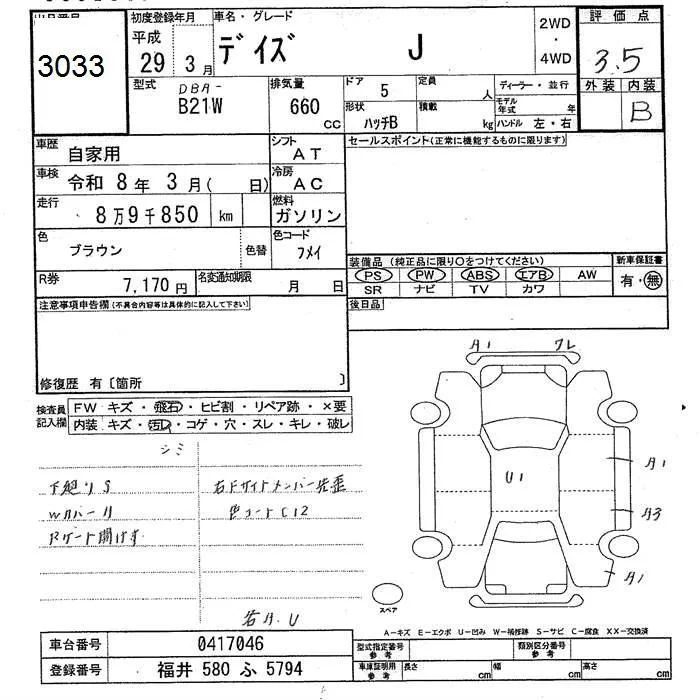 3033
初度登録年月
平成
29 3月
車名・グレード
デイズ J
2WD
・
4WD
評価点
3.5
外装 内装
B
型式
DBA-
B21W
排気量
660
cc
ドア 5
定員 人
形状
ハッチB
積載 kg
ディーラー・並行
モデル年式 年
ハンドル 左・右
車歴
自家用
シフト
AT
セールスポイント(正常に機能するものに限ります)
車検
令和 8年 3月( 日)
冷房
AC
走行
8万9千850 km
燃料
ガソリン
色
ブラウン
色替
色コード
フメイ
装備品 (純正品に限り○をつけてください)
新車保証書
PS PW ABS エアB AW
有・無
SR ナビ TV カワ
R券
7,170円
名変通知期限
月 日
後日品
注意事項申告欄(不具合内容等は具体的に記入して下さい)
修復歴 有〔箇所 〕
検査員記入欄
FW キズ・飛石・ヒビ割・リペア跡・×要
内装 キズ・汚レ・コゲ・穴・スレ・キレ・破レ
シミ
下廻りS
右Fサイドメンバー先歪
色コードC12
Rゲート開けず
A1
ワレ
U1
A1
A3
A1
スペア
A-キズ E-エクボ U-凹み W-補修跡 S-サビ C-腐食 XX-交換済
車台番号 0417046
登録番号 福井 580 ふ 5794
型式指定番号
参考
類別区分番号
参考
車庫証明用
参考
長さ cm
幅 cm
高さ cm